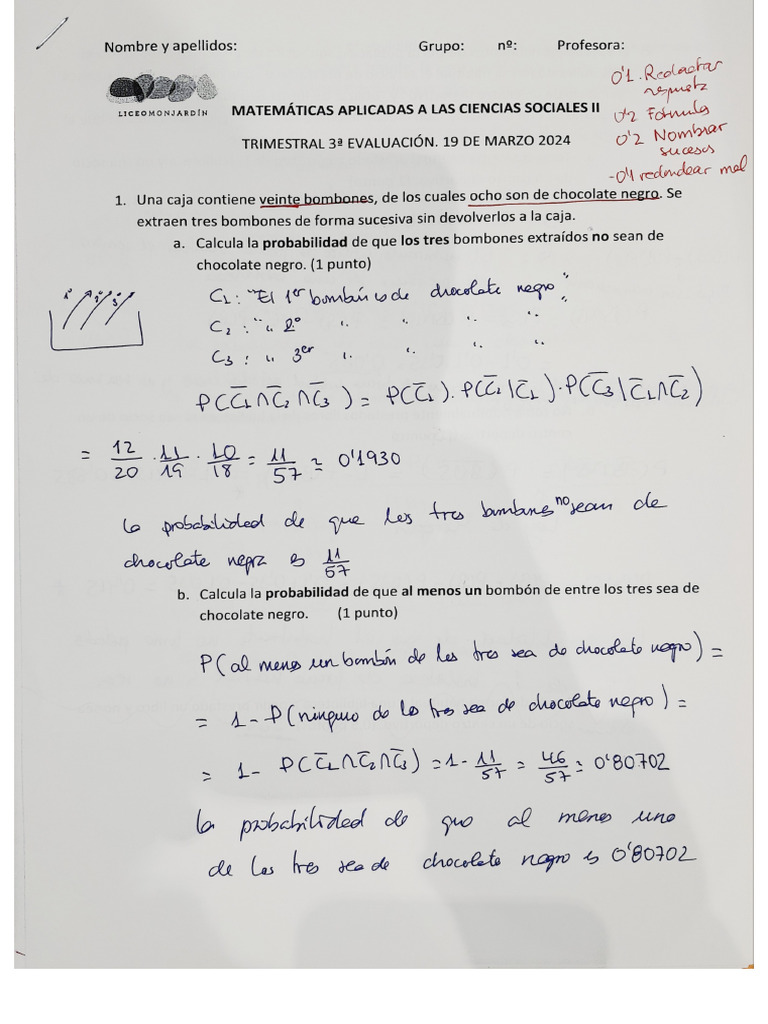 Nombre y apellidos: Grupo: nº: Profesora:
0'1. Redactar
respuesta
0'2 Fórmula
0'2 Nombrar
sucesos
-0'1 redondear mal
LICEOMONJARDÍN
MATEMÁTICAS APLICADAS A LAS CIENCIAS SOCIALES II
TRIMESTRAL 3ª EVALUACIÓN. 19 DE MARZO 2024
1. Una caja contiene veinte bombones, de los cuales ocho son de chocolate negro. Se
extraen tres bombones de forma sucesiva sin devolverlos a la caja.
a. Calcula la probabilidad de que los tres bombones extraídos no sean de
chocolate negro. (1 punto)
1º 2º 3º
C₁: "El 1er bombón es de chocolate negro"
C₂: " " 2º " " " "
C₃: " " 3er " " " "
P(C̅₁∩C̅₂∩C̅₃) = P(C̅₁)·P(C̅₂|C̅₁)·P(C̅₃|C̅₁∩C̅₂)
= 12/20 · 11/19 · 10/18 = 11/57 ≈ 0'1930
la probabilidad de que los tres bombones no sean de
chocolate negro es 11/57
b. Calcula la probabilidad de que al menos un bombón de entre los tres sea de
chocolate negro. (1 punto)
P(al menos un bombón de los tres sea de chocolate negro) =
= 1 - P(ninguno de los tres sea de chocolate negro) =
= 1 - P(C̅₁∩C̅₂∩C̅₃) = 1 - 11/57 = 46/57 ≈ 0'80702
la probabilidad de que al menos uno
de los tres sea de chocolate negro es 0'80702